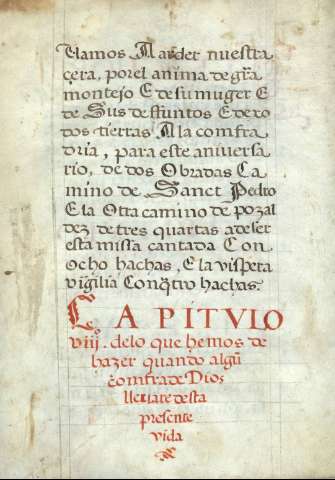 llamos A arder nuestra
çera, por el anima de gra͞
montejo E de su muger E
de Sus defuntos E de xo
dos tierras A la comfra
dria, para este aniversa
rio, de dos Obradas Ca
mino de Sanct Pedro
E la Otra camino de pozal
dez de tres quartas a de ser
esta missa cantada Con
Ocho hachas, E la vispera
vigilia Con qtro hachas.
CAPITVLO
viijº. de lo que hemos de
hazer quando algu͞
co͞frade Dios
lleuare desta
presente
vida